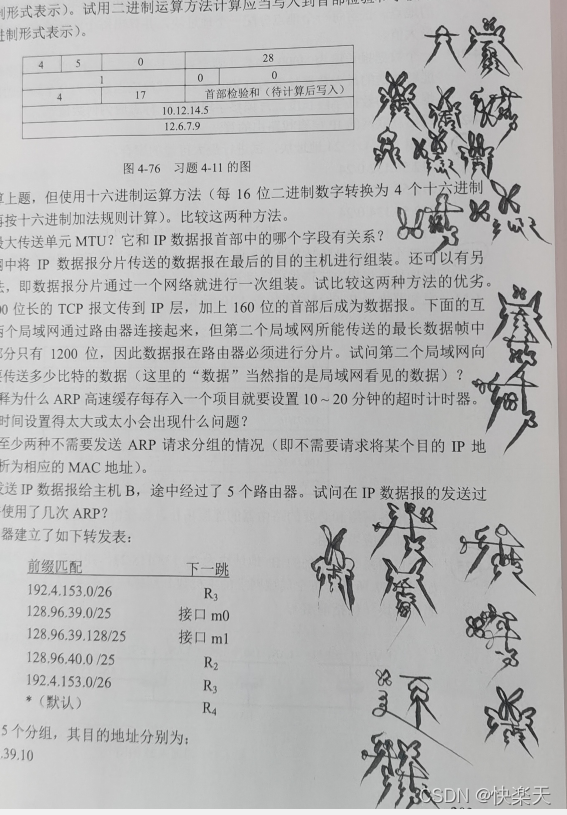 制形式表示）。试用二进制运算方法计算应当写入到首部检验和
进制形式表示）。
4 5 0 28
1 0 0
4 17 首部检验和（待计算后写入）
10.12.14.5
12.6.7.9
图 4-76 习题 4-11 的图
算上题，但使用十六进制运算方法（每 16 位二进制数字转换为 4 个十六进制
再按十六进制加法规则计算）。比较这两种方法。
最大传送单元 MTU？它和 IP 数据报首部中的哪个字段有关系？
网中将 IP 数据报分片传送的数据报在最后的目的主机进行组装。还可以有另
法，即数据报分片通过一个网络就进行一次组装。试比较这两种方法的优劣。
00 位长的 TCP 报文传到 IP 层，加上 160 位的首部后成为数据报。下面的互
两个局域网通过路由器连接起来，但第二个局域网所能传送的最长数据帧中
部分只有 1200 位，因此数据报在路由器必须进行分片。试问第二个局域网向
要传送多少比特的数据（这里的“数据”当然指的是局域网看见的数据）？
释为什么 ARP 高速缓存每存入一个项目就要设置 10 ~ 20 分钟的超时计时器。
时间设置得太大或太小会出现什么问题？
至少两种不需要发送 ARP 请求分组的情况（即不需要请求将某个目的 IP 地
析为相应的 MAC 地址）。
发送 IP 数据报给主机 B，途中经过了 5 个路由器。试问在 IP 数据报的发送过
使用了几次 ARP？
器建立了如下转发表：
前缀匹配 下一跳
192.4.153.0/26 R3
128.96.39.0/25 接口 m0
128.96.39.128/25 接口 m1
128.96.40.0 /25 R2
192.4.153.0/26 R3
*（默认） R4
5 个分组，其目的地址分别为：
.39.10
CSDN @快樂天